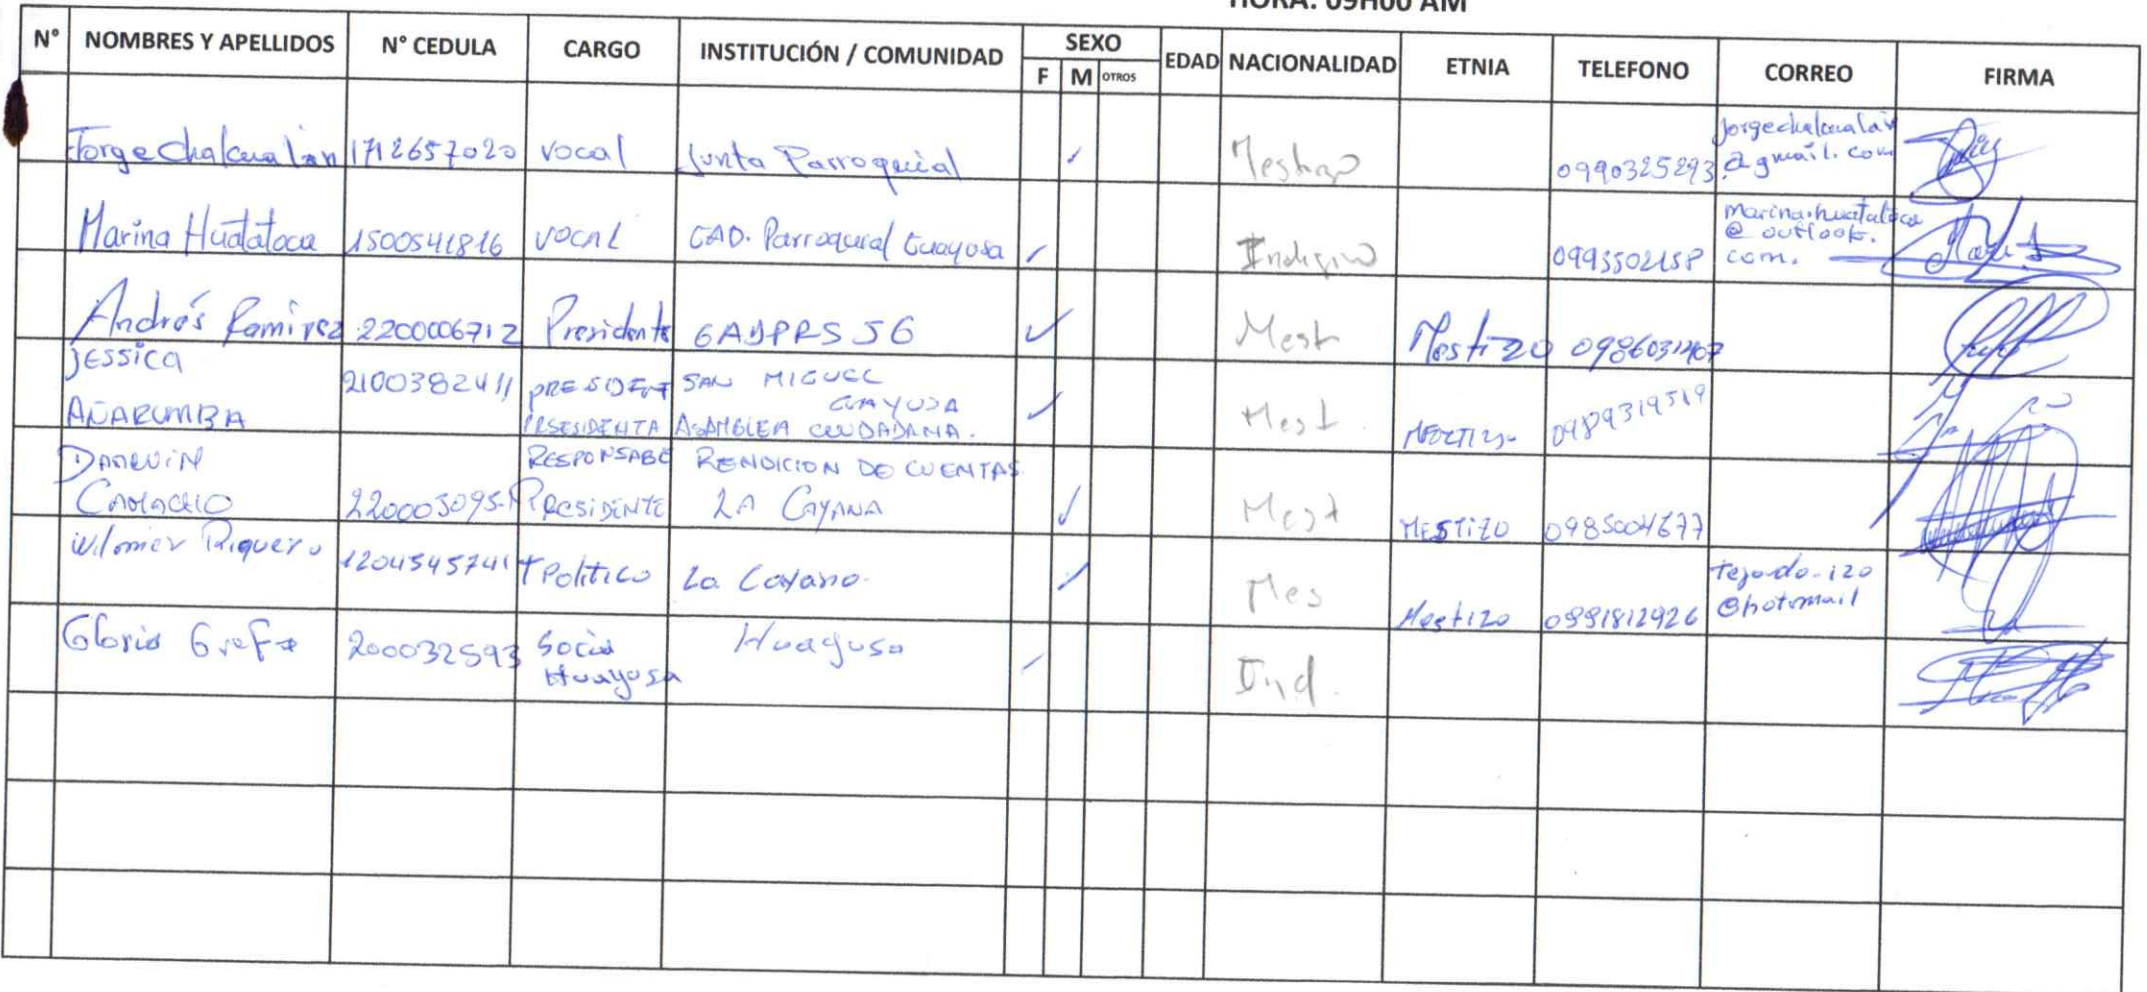 HORA: 09H00 AM
N° NOMBRES Y APELLIDOS N° CEDULA CARGO INSTITUCIÓN / COMUNIDAD SEXO EDAD NACIONALIDAD ETNIA TELEFONO CORREO FIRMA
F M OTROS
Jorge Chalcualan 1712657020 vocal Junta Parroquial Mestizo 0990325293 jorgechalcualan
@gmail.com
Marina Huatatoca 1500541816 VOCAL GAD. Parroquial Guayusa Indigino marina.huatatoca
@outlook.
com.
Andrés Ramirez 2200006712 Presidente GADPRSJG Mest Mestizo
JESSICA
AÑARUMBA 2100382411 PRESIDENT SAN MIGUEL
GUAYUSA Mest
ASAMBLEA CIUDADANA.
RENDICION DE CUENTAS
DARWIN
CAMACHO PRESIDENTE LA CAYANA Mest MESTIZO 0985004677
Wilmer Piquero 1204545741 T Politico La Cayana Mes Mestizo 0991812926 @hotmail
Gloria Grefa 200032593 Socia Huayusa Ind.
Huayusa